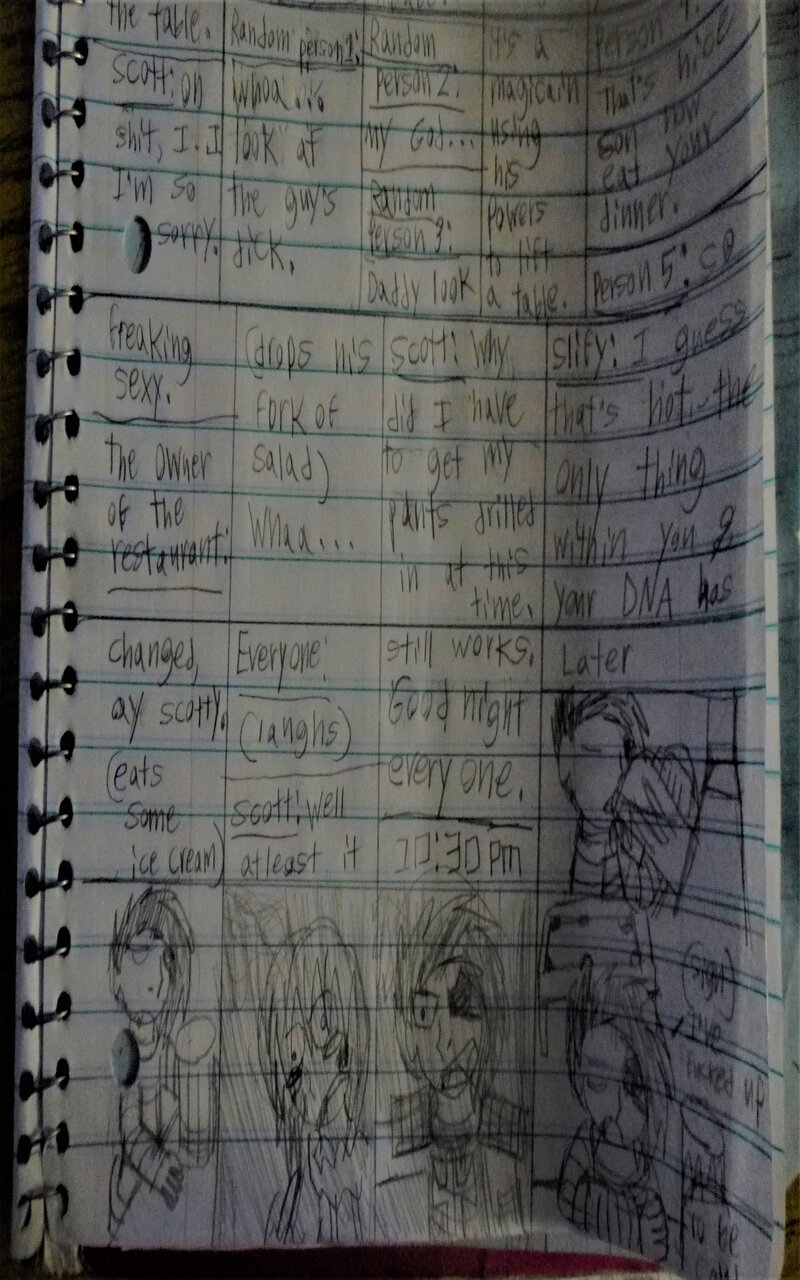 the table.
Scott: oh
shit, I..I
I'm so
sorry.
Random person 1:
Whoa...
look at
the guy's
dick.
Random
person 2:
my God...
Random
Person 3:
Daddy look
it's a
magicain
using
his
powers
to lift
a table.
Person 4:
that's nice
son now
eat your
dinner.
Person 5: so
freaking
sexy.
the owner
of the
restaurant:
(drops his
fork of
salad)
Whaa...
Scott: Why
did I have
to get my
pants drilled
in at this
time.
slify: I guess
that's hot..the
only thing
within you &
your DNA has
changed,
ay scotty.
(eats
some
ice cream)
Everyone:
(laughs)
Scott: well
atleast it
still works.
Good night
everyone.
10:30 pm
Later
(sigh)
I've
fucked up
to be